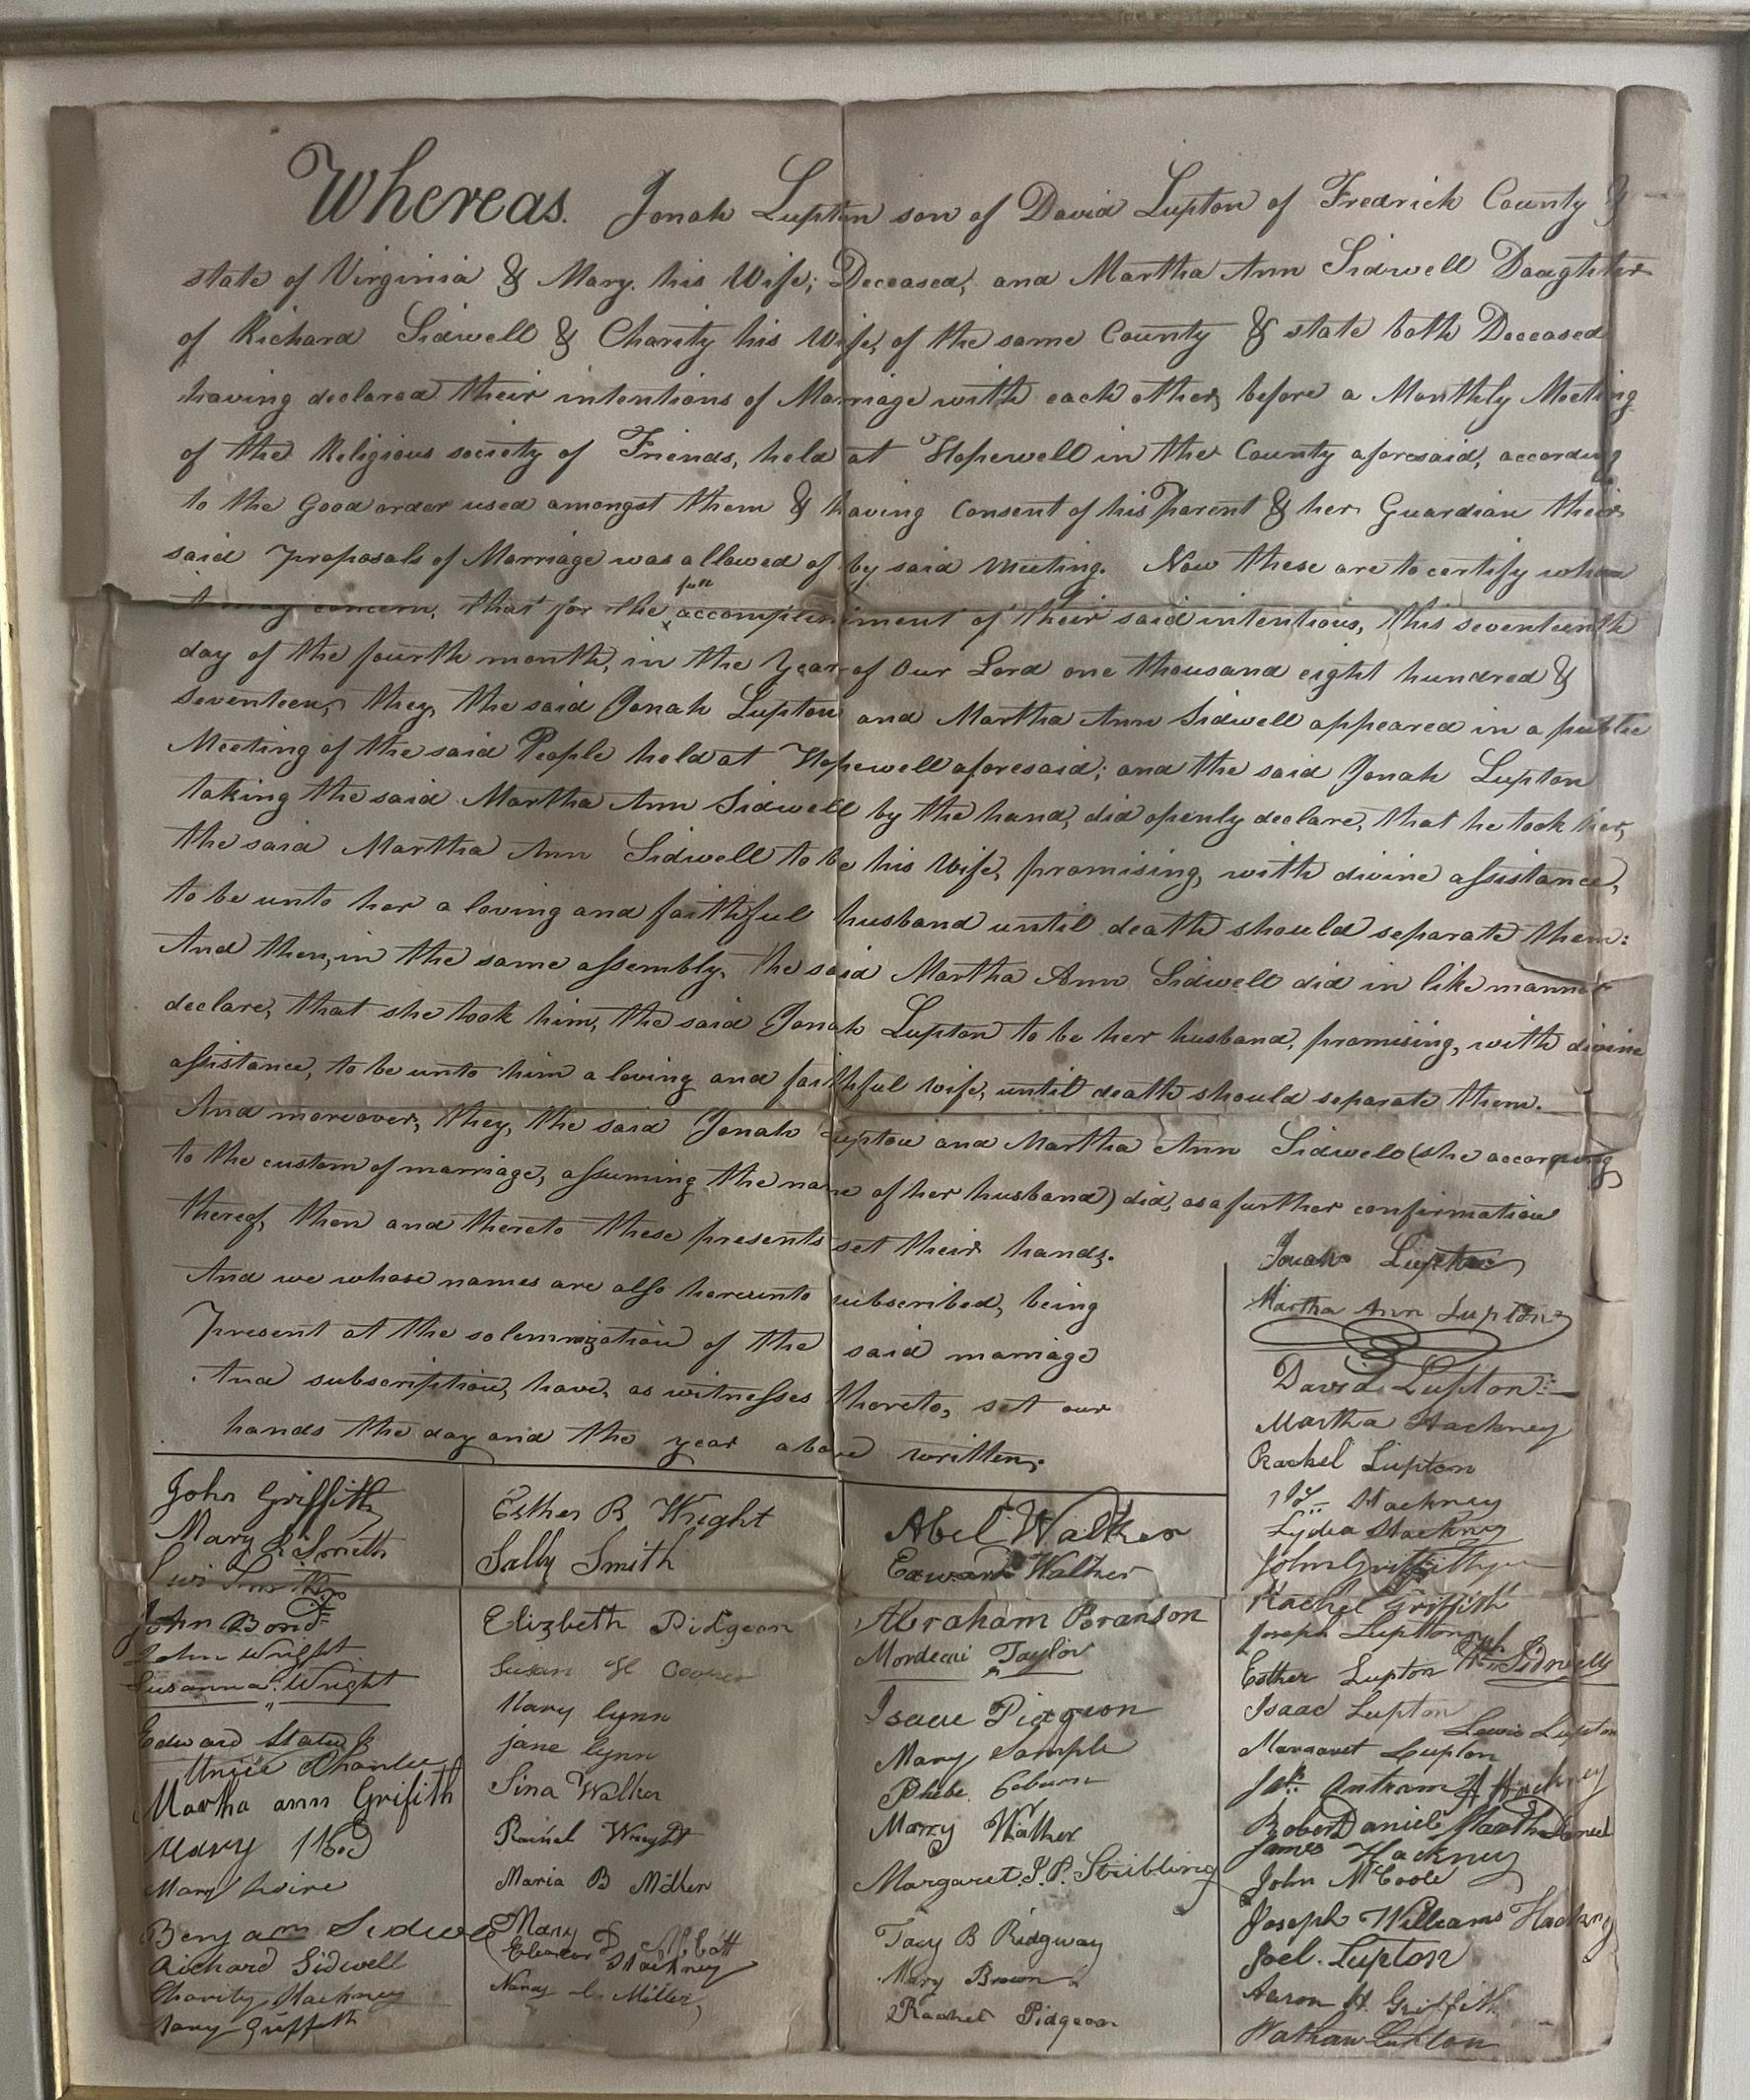 Whereas. Jonah Lupton son of David Lupton of Fredrick County &
state of Virginia & Mary his Wife; Deceased, and Martha Ann Sidwell Daughter
of Richard Sidwell & Charity his Wife, of the same County & state both Deceased
having declared their intentions of Marriage with each other, before a Monthly Meeting
of the Religious society of Friends, held at Hopewell in the County aforesaid, according
to the Good order used amongst them & having Consent of his Parent & her Guardian their
said Proposals of Marriage was allowed of by said Meeting. Now these are to certify whom
full
it may concern, that for the accomplishment of their said intentions, this seventeenth
day of the fourth month, in the Year of Our Lord one thousand eight hundred &
seventeen, they, the said Jonah Lupton and Martha Ann Sidwell appeared in a public
Meeting of the said People held at Hopewell aforesaid; and the said Jonah Lupton
taking the said Martha Ann Sidwell by the hand, did openly declare, that he took her,
the said Martha Ann Sidwell to be his Wife, promising, with divine assistance,
to be unto her a loving and faithful husband until death should separate them:
And then, in the same assembly, the said Martha Ann Sidwell did in like manner
declare, that she took him, the said Jonah Lupton to be her husband, promising, with divine
assistance, to be unto him a loving and faithful wife, until death should separate them.
And moreover, they, the said Jonah Lupton and Martha Ann Sidwell (she according
to the custom of marriage, assuming the name of her husband) did, as a further confirmation
thereof, then and thereto these presents set their hands.
And we whose names are also hereunto subscribed, being
Present at the solemnization of the said marriage
And subscription, have, as witnesses thereto, set our
hands the day and the year above written.
John Griffith
Mary R Smith
John Bond
John Wright
Susanna Wright
Edward
Martha ann Grifith
Mary
Mary
Benjam Sidwel
Richard Sidwell
Charity Hackney
Mary Griffith
Esther B Wright
Sally Smith
Elizbeth Pidgeon
Susan H
Mary lynn
jane lynn
Sina Walker
Rachel Wright
Maria B Miller
Mary P Abbott
Eleanor Hackney
Nancy C. Miller
Abel Walker
Edward Walker
Abraham Branson
Mordecai Taylor
Isaac Pidgeon
Mary Sample
Phebe Coburn
Mary Walker
Margaret. J. P. Stribling
Tacy B Ridgway
Mary Brown
Rachel Pidgeon
Jonah Lupton
Martha Ann Lupton
David Lupton
Martha Hackney
Rachel Lupton
Hackney
Lydia Hackney
John Griffith
Rachel Griffith
Joseph Lupton
Esther Lupton Sidwell
Isaac Lupton
Lewis Lupton
Margaret Lupton
Antram Hackney
Robert Daniel Martha Daniel
James Hackney
John McCoole
Joseph Williams Hackney
Joel. Lupton
Aaron H. Griffith
Nathan Lupton